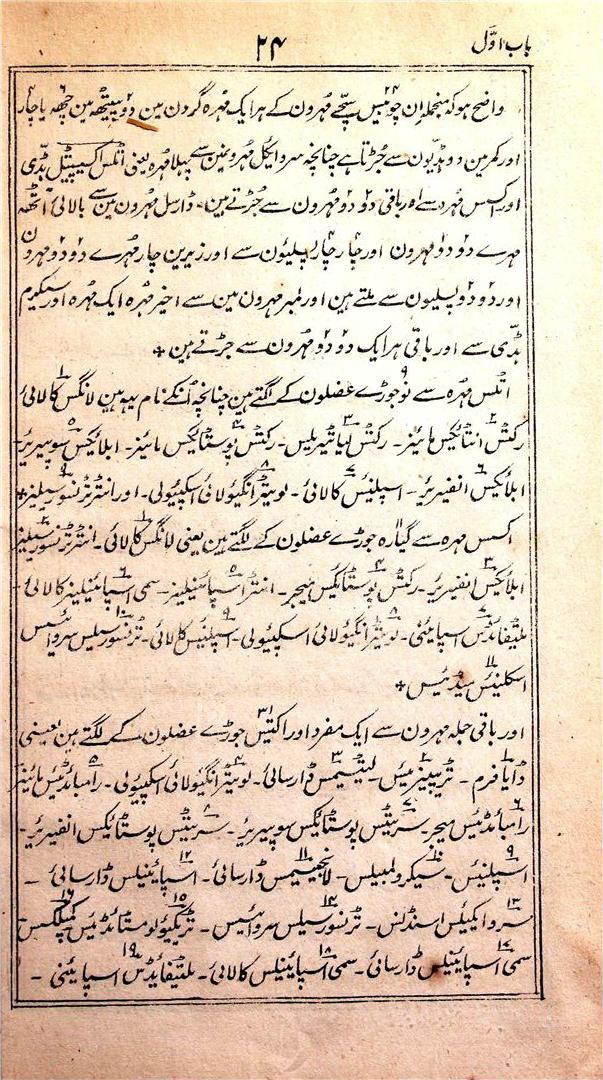 باب اوّل
۲۴
واضح ہو کہ منجملہ ان چوبیس سچّے مُہرون کے ہر ایک مُہرہ گردن مین دو پیٹھ مین چھہ یا چار
اور کمر مین دو ہڈیون سے جُڑتا ہے چنانچہ سروائیکل مہرونمین سے پہلا مُہرہ یعنی اٹلس آکسیپیٹل ہڈی
اور اکسس مُہرہ سے اور باقی دو دو مُہرون سے جُڑتے ہین ۔ ڈارسل مہرون مین سے بالائی آٹھہ
مہرے دو دو مہرون اور چار چار پسلیون سے اور زیرین چار مہرے دو دو مہرون
اور دو دو پسلیون سے ملتے ہین اور لمبر مہرون مین سے اخیر مُہرہ ایک مہرہ اور سیکرم
ہڈّی سے اور باقی ہر ایک دو دو مُہرون سے جڑتے ہین *
اٹلس مُہرہ سے نو جوڑے عضلون کے لگتے ہین چنانچہ اُنکے نام یہہ ہین لانگس کالائی
رکٹس انٹائیکس مائینر ۔ رکٹس لیاٹیریلس ۔ رکٹس پوسٹائیکس مائینر ۔ ابلائیکس سوپیریر ۔
ابلائیکس انفیریر ۔ اسپلنیئس کالائی ۔ لویٹر انگیولائی اسکیپیولی ۔ اور انٹر ٹرنسورسیلیز *
اکسس مہرہ سے گیارہ جوڑے عضلون کے لگتے ہین یعنی لانگس کالائی ۔ انٹر ٹرنسورسیلیز
ابلائیکس انفیریر ۔ رکٹس پوسٹائیکس میجر ۔ انٹر اسپائینیلیز ۔ سمی اسپائینیلیز کالائی ۔
ملٹیفائڈس اسپائینی ۔ لویٹر انگیولائی اسکیپیولی ۔ اسپلنیئس کالائی ۔ ٹرنسورسیلس سروائیسس
اسکلینیئس میڈیئس *
اور باقی جملہ مہرون سے ایک مفرد اور اکتیس جوڑے عضلون کے لگتے ہین یعنی
ڈایافرم ۔ ٹریپیزیئس ۔ لیٹیسمس ڈارسائی ۔ لویٹر انگیولائی اسکیپیولی ۔ رامبائڈیئس مائینر
رامبائڈیئس میجر ۔ سریٹس پوسٹائیکس سوپیریر ۔ سریٹس پوسٹائیکس انفیریر ۔
اسپلنیئس ۔ سیکرولمبیلس ۔ لانجیسیمس ڈارسائی ۔ اسپائینیلس ڈارسائی ۔
سروائیکیلس اسنڈنس ۔ ٹرنسورسیلس سروائیسس ۔ ٹریکیلومسٹائڈیئس کمپلکسس
سمی اسپائینیلس ڈارسائی ۔ سمی اسپائینیلس کالائی ۔ ملٹیفائڈس اسپائینی ۔